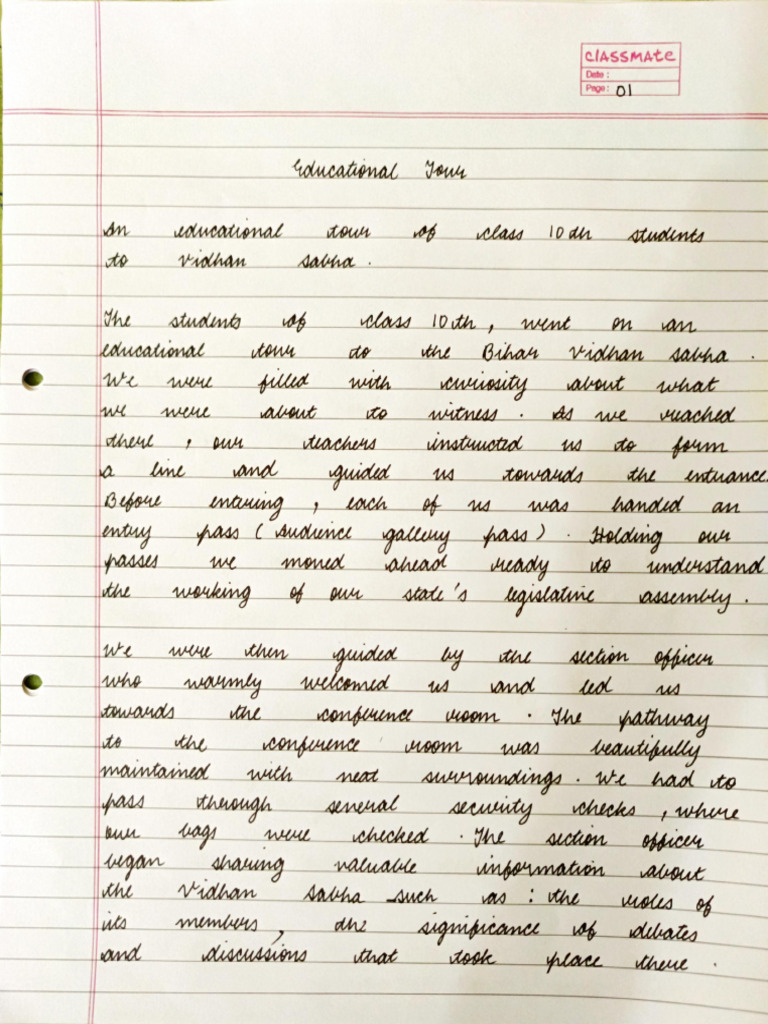 CLASSMATE
Date :
Page: 01
Educational Tour
An educational tour of class 10th students
to Vidhan Sabha.
The students of class 10th, went on an
educational tour to the Bihar Vidhan Sabha.
We were filled with curiosity about what
we were about to witness. As we reached
there, our teachers instructed us to form
a line and guided us towards the entrance.
Before entering, each of us was handed an
entry pass (Audience gallery pass). Holding our
passes we moved ahead ready to understand
the working of our state's legislative assembly.
We were then guided by the section officer
who warmly welcomed us and led us
towards the conference room. The pathway
to the conference room was beautifully
maintained with neat surroundings. We had to
pass through several security checks, where
our bags were checked. The section officer
began sharing valuable information about
the Vidhan Sabha such as : the roles of
its members, the significance of debates
and discussions that took place there.